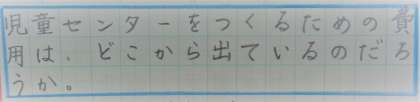 児童センターをつくるための費
用は、どこから出ているのだろ
うか。